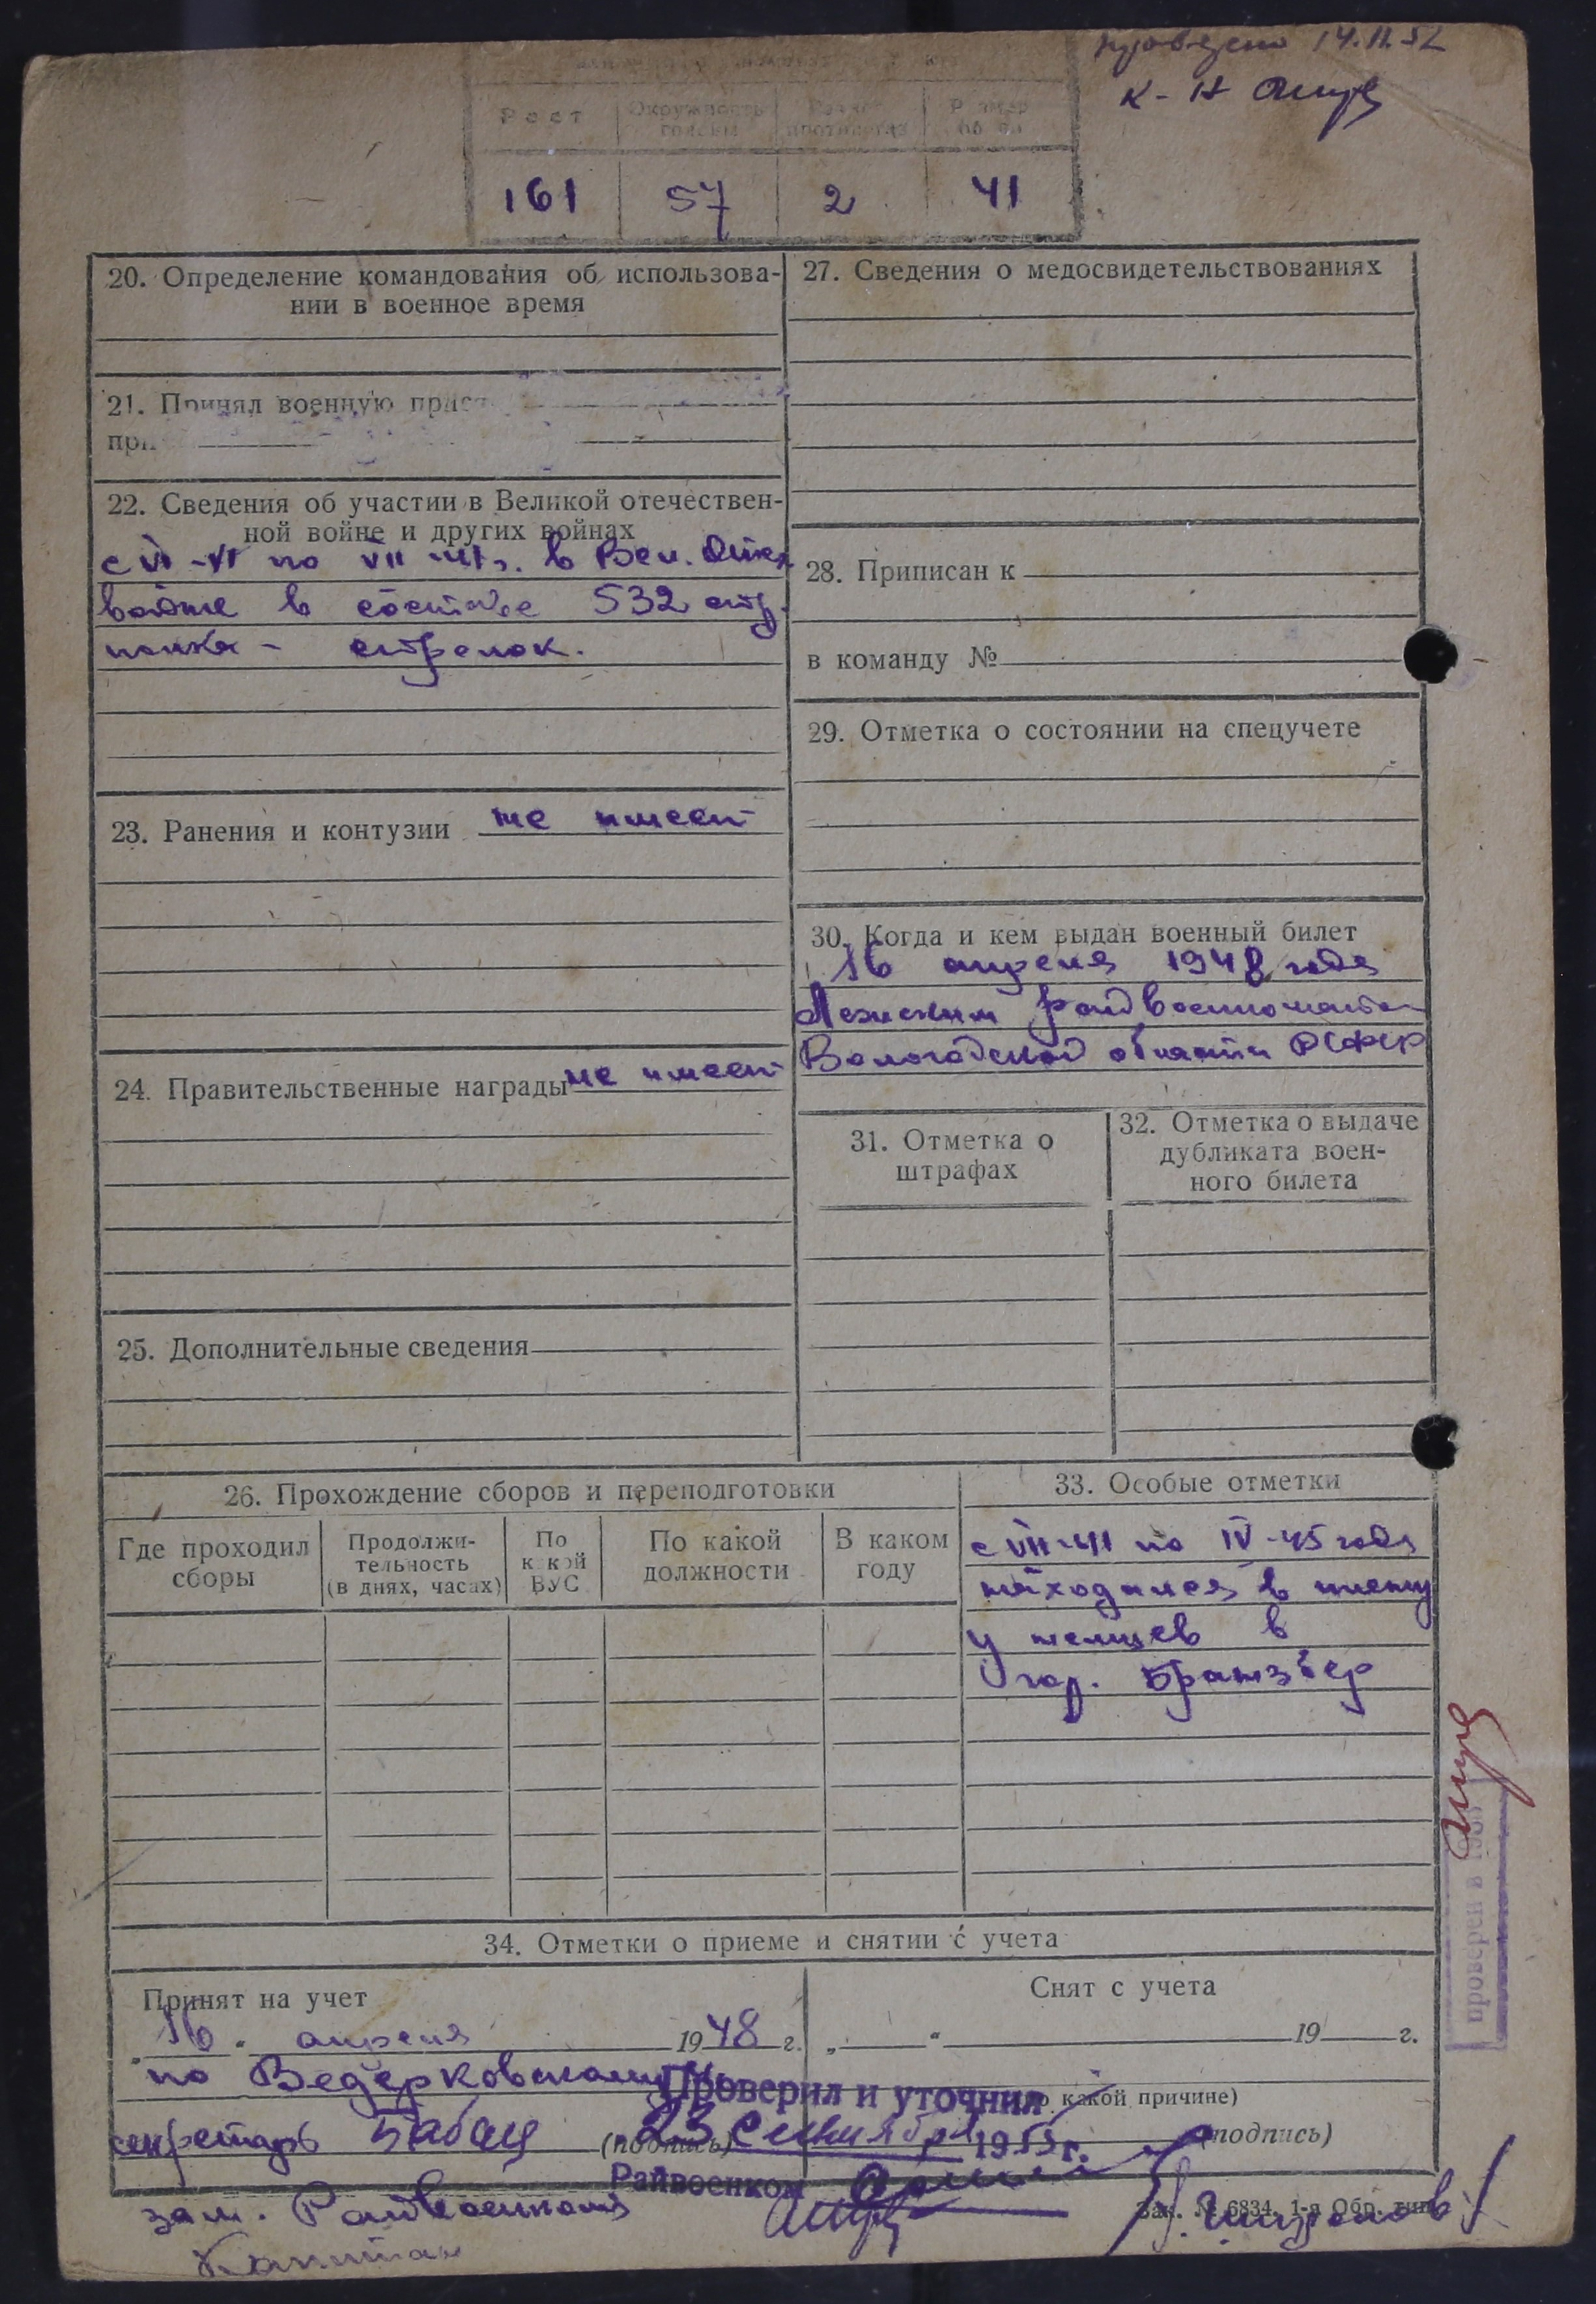 проведено 14.II.52
к-н
Рост
Окружность головы
Размер противогаза
Размер обуви
161 57 2 41
20. Определение командования об использова-
нии в военное время
21. Принял военную прис
при
22. Сведения об участии в Великой отечествен-
ной войне и других войнах
с VI-41 по VII-41 г. в Вел. Отеч.
войне в составе 532 стр.
полка - стрелок.
23. Ранения и контузии не имеет
24. Правительственные награды не имеет
25. Дополнительные сведения
27. Сведения о медосвидетельствованиях
28. Приписан к
в команду №
29. Отметка о состоянии на спецучете
30. Когда и кем выдан военный билет
16 апреля 1948 года
Лежским райвоенкоматом
Вологодской области РСФСР
31. Отметка о
штрафах
32. Отметка о выдаче
дубликата воен-
ного билета
26. Прохождение сборов и переподготовки
Где проходил
сборы
Продолжи-
тельность
(в днях, часах)
По
какой
ВУС
По какой
должности
В каком
году
33. Особые отметки
с VII-41 по IV-45 года
находился в плену
у немцев в
гор. Бранзбер
проверен в 195
34. Отметки о приеме и снятии с учета
Принят на учет
„16“ апреля 1948 г.
по Ведерковскому
секретарь (подпись)
Снят с учета
„ “ 19 г.
по какой причине)
(подпись)
Проверил и уточнил
23 сентября 1955 г.
Райвоенком
зам. Райвоенкома
Капитан
Зак. № 6834. 1-я Обр. тип.